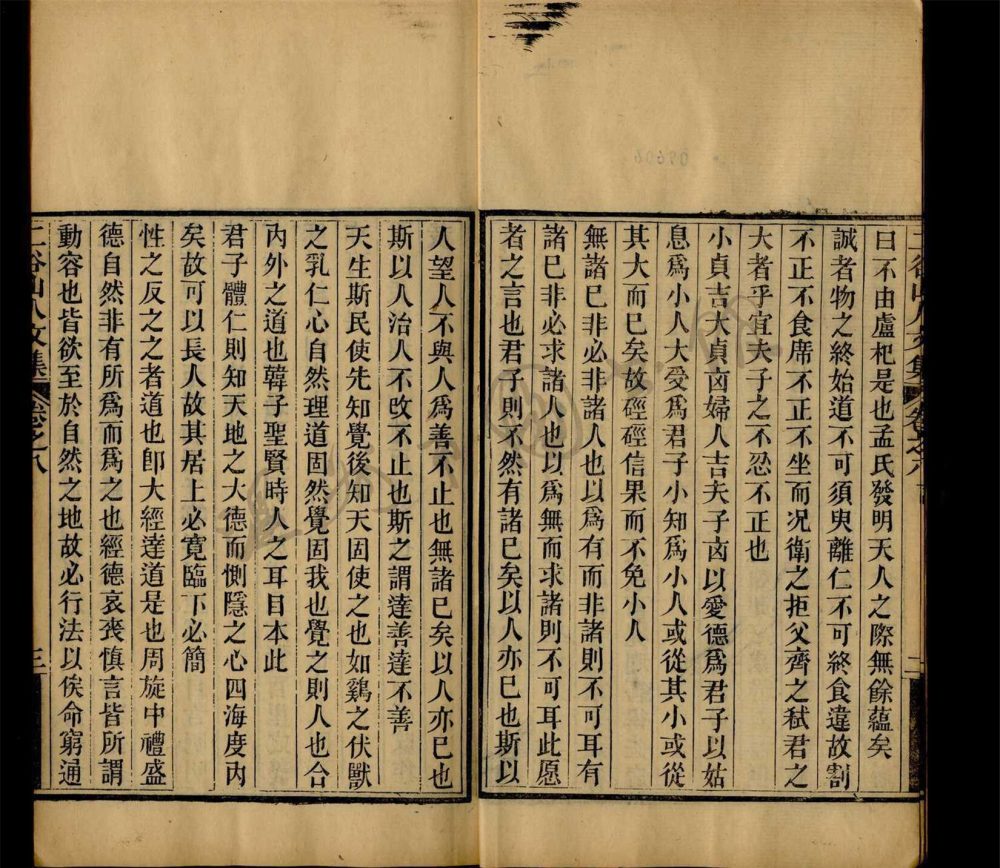 曰不由盧杞是也孟氏發明天人之際無餘蘊矣
誠者物之終始道不可須臾離仁不可終食違故割
不正不食席不正不坐而況衛之拒父齊之弒君之
大者乎宜夫子之不忍不正也
小貞吉大貞㐫婦人吉夫子㐫以愛德爲君子以姑
息爲小人大受爲君子小知爲小人或從其小或從
其大而已矣故硜硜信果而不免小人
無諸巳非必非諸人也以爲有而非諸則不可耳有
諸巳非必求諸人也以爲無而求諸則不可耳此愿
者之言也君子則不然有諸巳矣以人亦巳也斯以
人望人不與人爲善不止也無諸巳矣以人亦巳也
斯以人治人不改不止也斯之謂達善達不善
天生斯民使先知覺後知天固使之也如鷄之伏獸
之乳仁心自然理道固然覺固我也覺之則人也合
內外之道也韓子聖賢時人之耳目本此
君子體仁則知天地之大德而惻隱之心四海度內
矣故可以長人故其居上必寛臨下必簡
性之反之之者道也卽大經達道是也周旋中禮盛
德自然非有所爲而爲之也經德哀喪慎言皆所謂
動容也皆欲至於自然之地故必行法以俟命窮通
二谷山人文集
卷之八
三